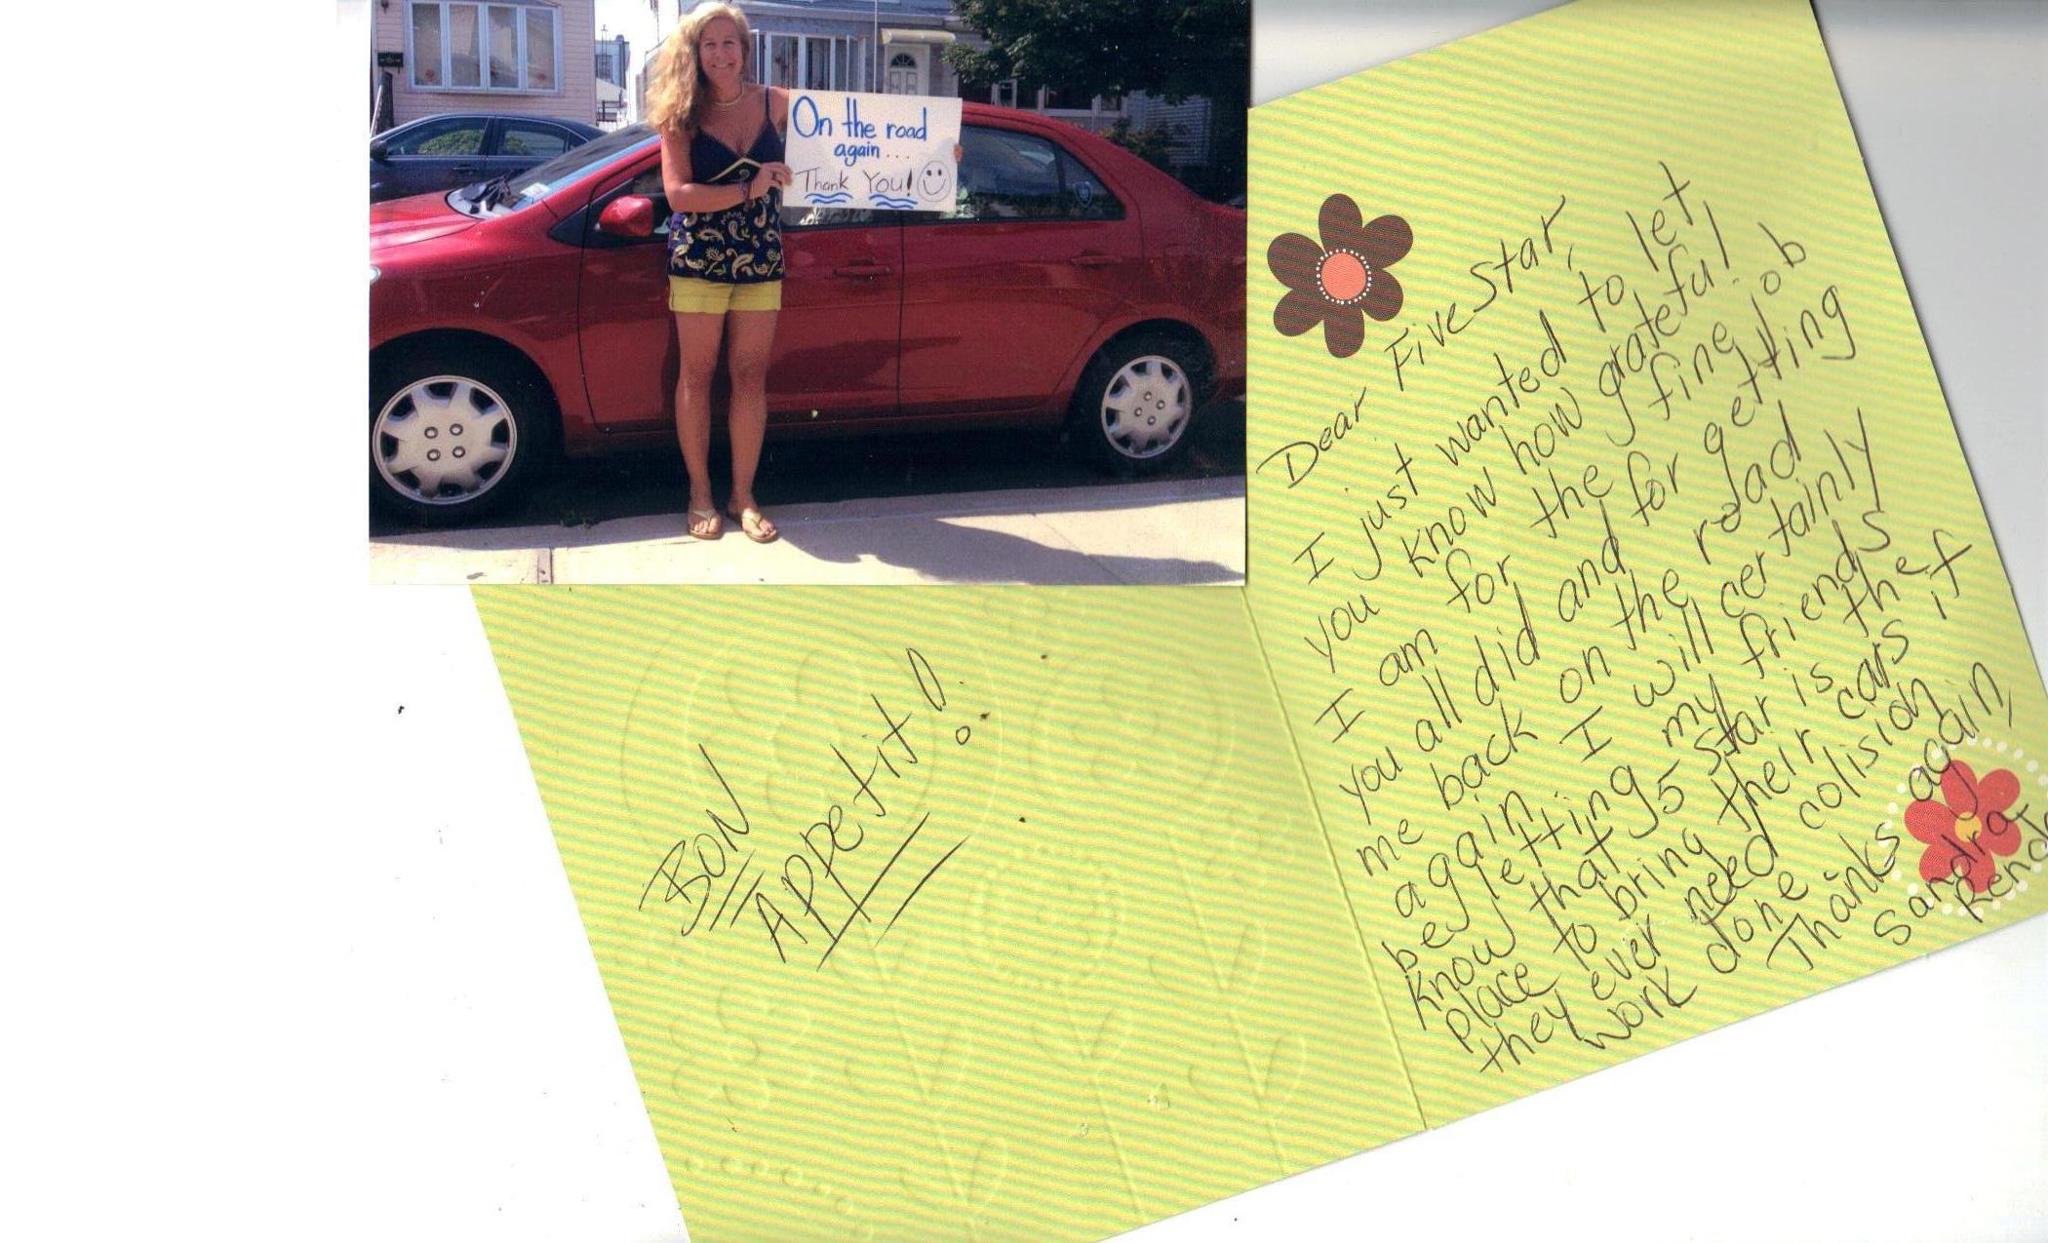 On the road
again...
Thank You!
Dear Five Star,
I just wanted to let
you know how grateful
I am for the fine job
you all did and for getting
me back on the road
again. I will certainly
be letting my friends
know that 5 Star is the
place to bring their cars if
they ever need colision
work done
Thanks again,
Sandra
BON
APPetit!